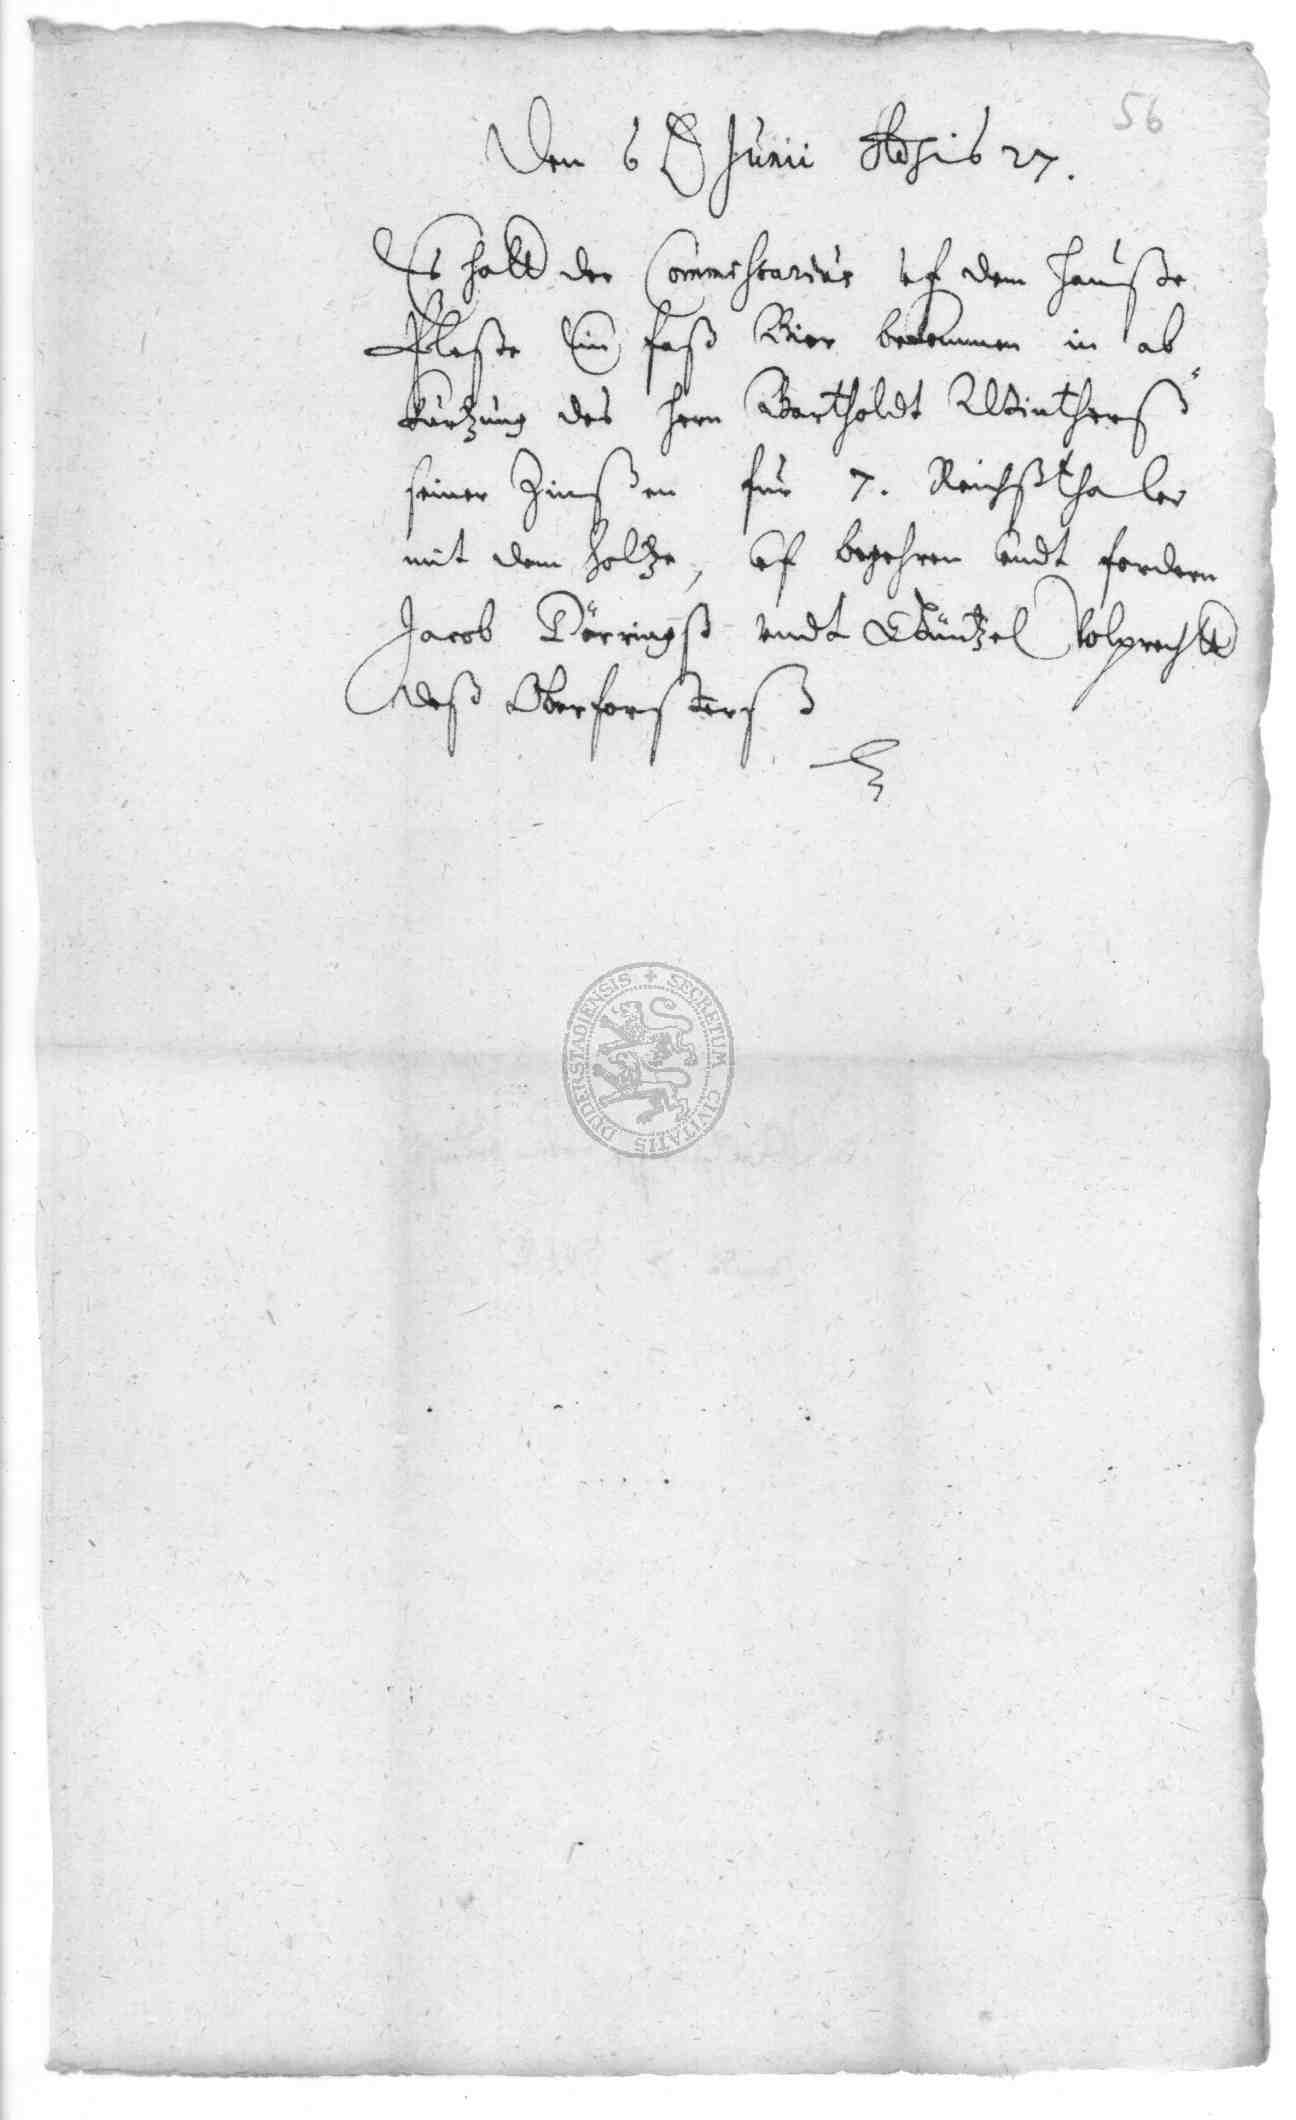 56
Den 6 Junii 27.
Es hatt der Commissarius uf dem Hauße
Pleße Ein faß Bier bekommen in ab
kurtzung des Hern Bartholdt Winthersß
seiner Zinßen fur 7. Reichßthaler
mit dem holtze, uf begehren undt fordern
Jacob Dörringß undt Volprecht
deß Oberforsterß
SECRETUM CIVITATIS DUDERSTADIENSIS